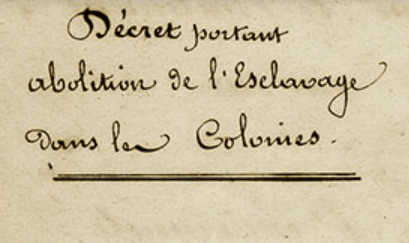 Décret portant
abolition de l'Esclavage
dans les Colonies.